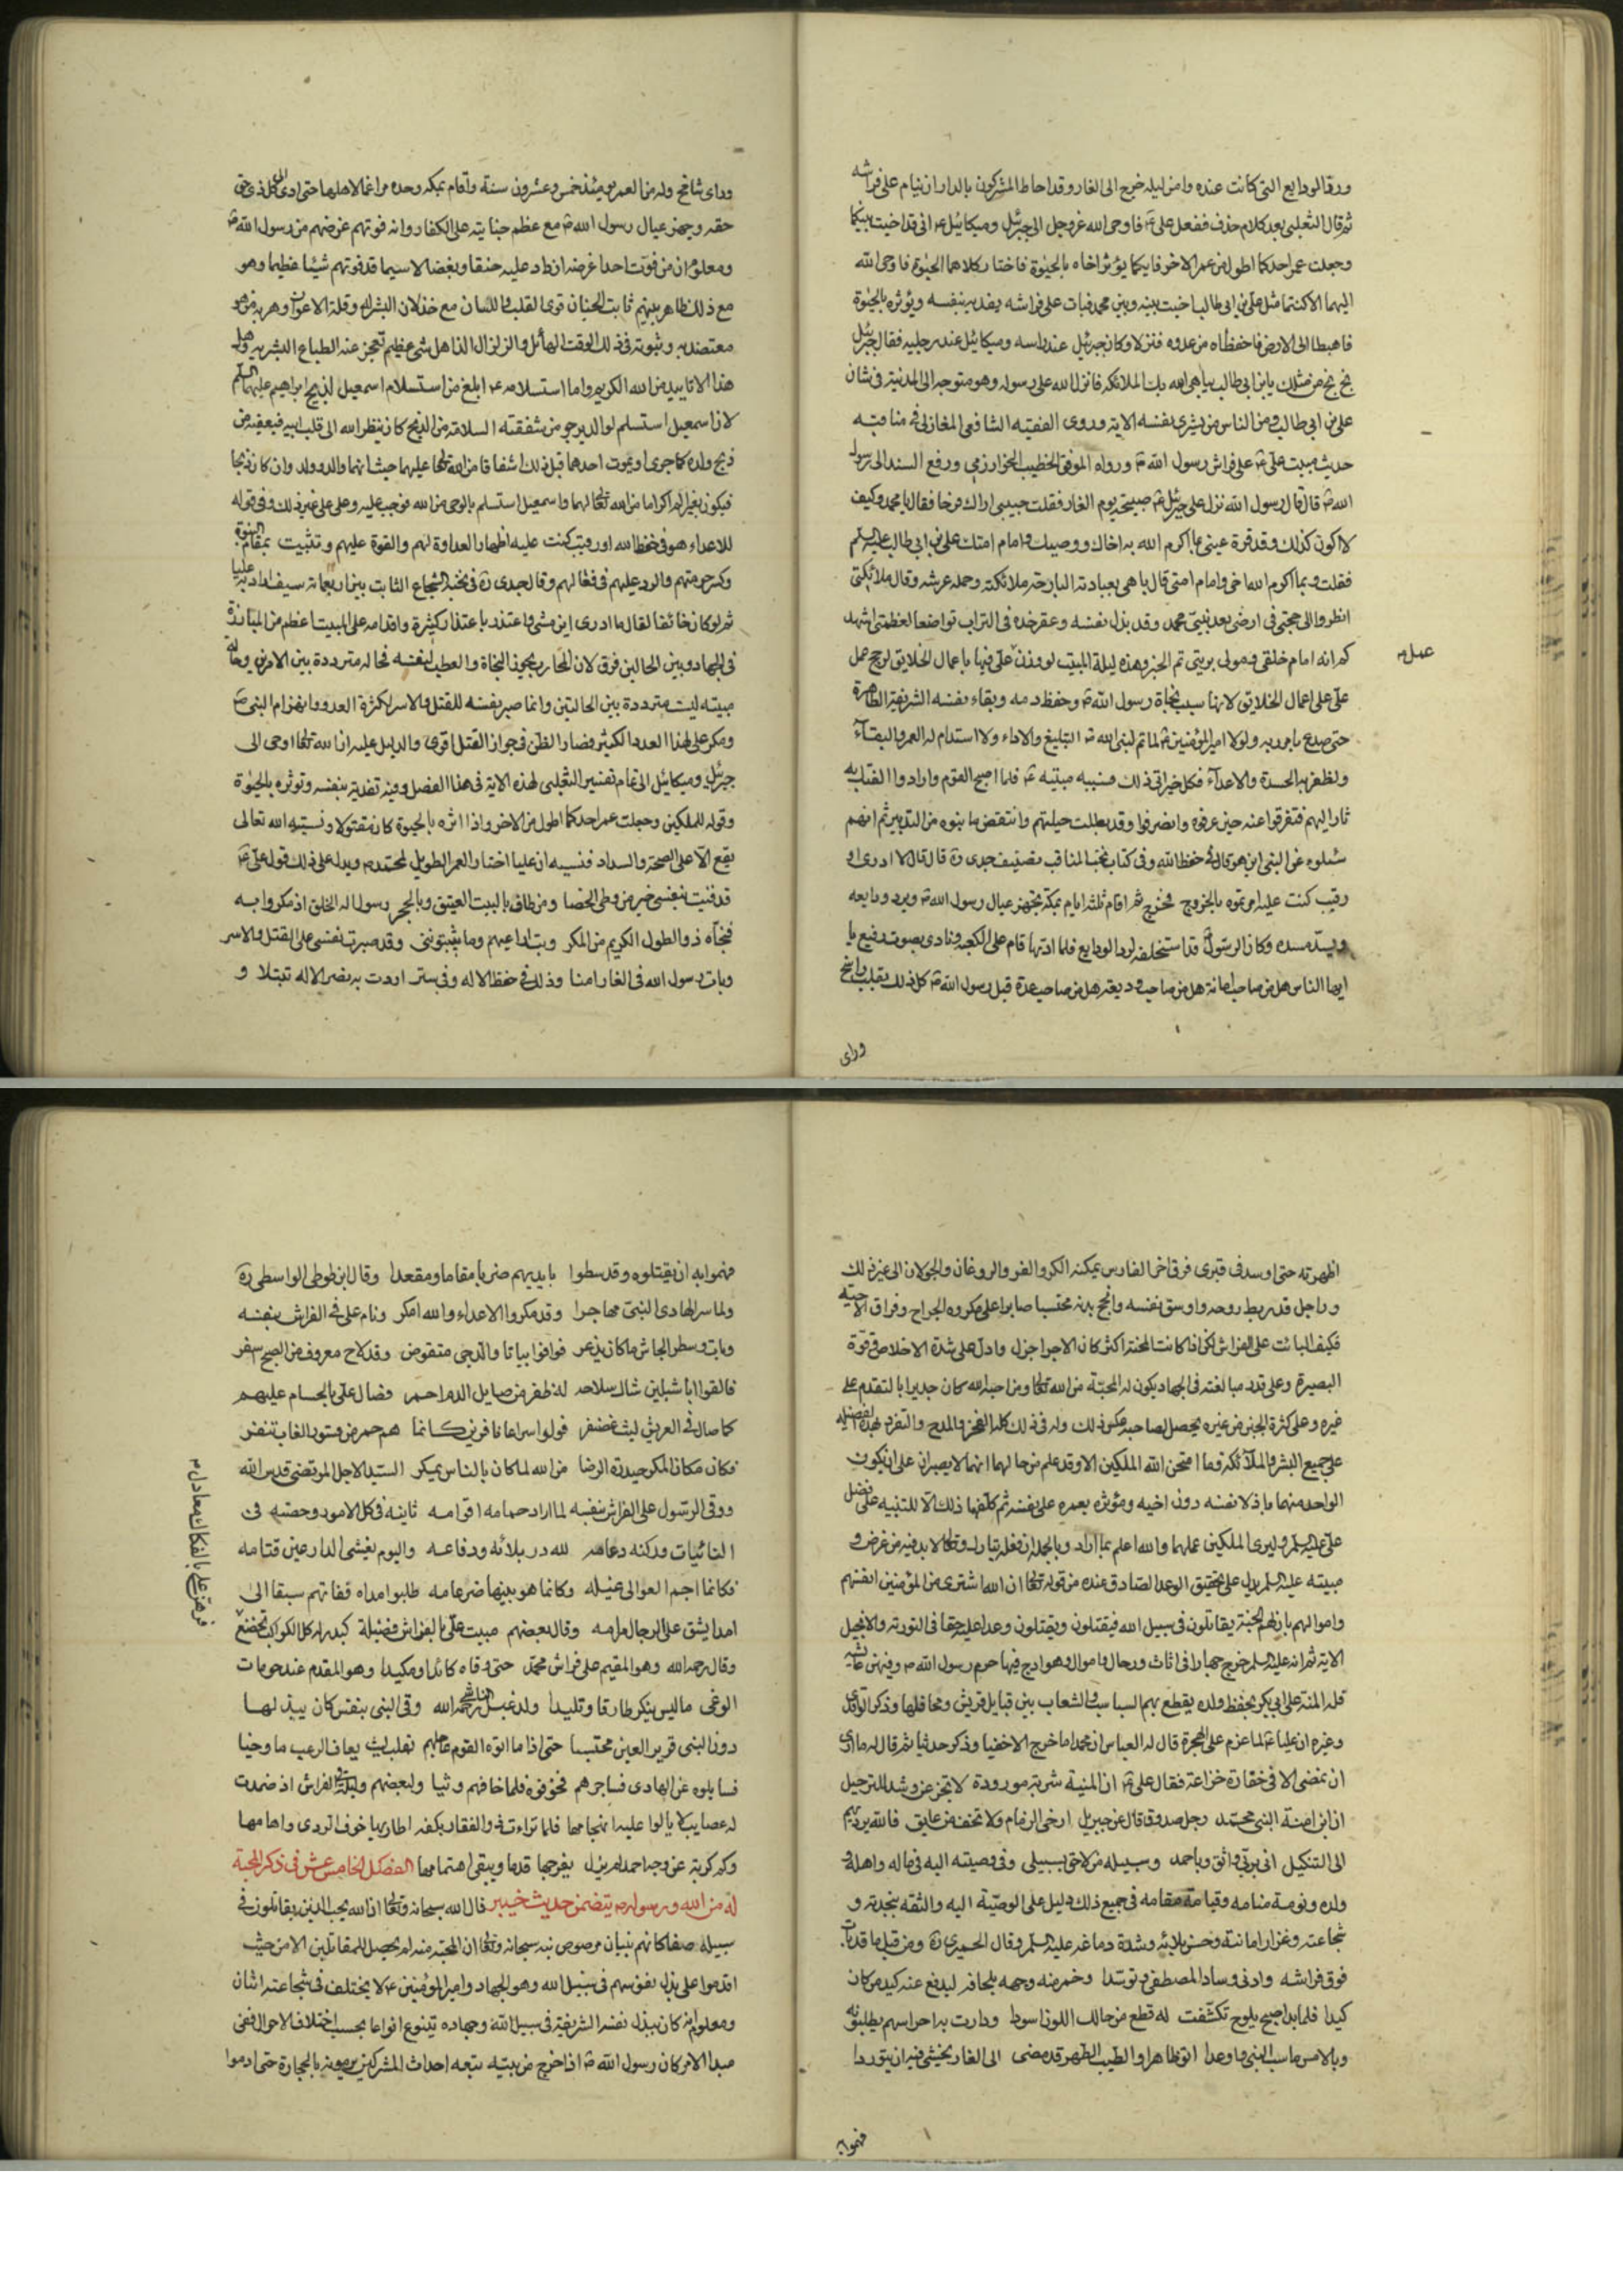 ورد الودايع التى كانت عنده وامره ليله خرج الى الغار وقد احاط المشركون بالدار ان ينام على فراشه
ثم قال الثعلبى بعد كلام حذف ففعل على ع فاوحى الله عز وجل الى جبرئيل وميكائيل ع انى قد اخيت بينكما
وجعلت عمر احدكما اطول من عمر الاخر فايكما يؤثر اخاه بالحيوة فاختار كلاهما الحيوة فاوحى الله
اليهما الا كنتما مثل على بن ابى طالب اخيت بينه وبين محمد فبات على فراشه يفديه بنفسه ويؤثره بالحيوة
فاهبطا الى الارض فاحفظاه من عدوه فنزلا وكان جبرئيل عند راسه وميكائيل عند رجليه فقال جبرئيل
بخ بخ من مثلك يابن ابى طالب يباهى الله بك الملائكة فانزل الله على رسوله وهو متوجه الى المدينة فى شان
على بن ابى طالب ومن الناس من يشرى نفسه الاية وروى الفقيه الشافعى المغازلى فى مناقبه
حديث مبيت على ع على فراش رسول الله ص ورواه الموفق الخطيب الخوارزمى ورفع السند الى رسول
الله ص قال قال رسول الله نزل على جبرئيل ع صبيحة يوم الغار فقلت حبيبى اراك فرحا فقال يا محمد وكيف
لا اكون كذلك وقد قرة عينى بما اكرم الله به اخاك ووصيك وامام امتك على بن ابى طالب عليه السلم
فقلت وبما اكرم الله اخى وامام امتى قال باهى بعبادته البارحة ملائكته وحملة عرشه وقال ملائكتى
انظروا الى حجتى فى ارضى بعد نبيى محمد وقد بذل نفسه وعفر خده فى التراب تواضعا لعظمتى اشهد
كم انه امام خلقى ومولى بريتى تم الخبر وهذه ليلة المبيت لو وزن على فيها باعمال الخلايق لرجح عمل
عمل م
على على اعمال الخلايق لانها سبب نجاة رسول الله ص وحفظ دمه وبقاء نفسه الشريفة الطاهرة
حتى صدع بامر ربه ولولا امير المؤمنين ع لما تم لنبى الله ص التبليغ والاداء ولا استدام له العمر والبقاء
ولظفر به الحسدة والاعداء فكل خير اتى ذلك فسببه مبيته ع فلما اصبح القوم وارادوا الفتك به
ثار اليهم فتفرقوا عنه حين عرفوه وانصرفوا وقد بطلت حيلتهم وانتقض ما بنوه من التدبير ثم انهم
سئلوه عن النبى اين هو قال فى حفظ الله وفى كتاب نخب المناقب تصنيف جدى ره قال قال لا ادرى او
رقيب كنت عليه امرتموه بالخروج فخرج ثم اقام ثلثه ايام بمكة يجهز عيال رسول الله ص ويرد ودايعه
ويسد مسده وكان الرسول قد استخلفه لرد الودايع فلما ادتها قام على الكعبه ونادى بصوت رفيع يا
ايها الناس هل من صاحب امانة هل من صاحب وديعة هل من صاحب عدة قبل رسول الله ص كل ذلك بقلب راسخ
وراى
وراى شامخ وله من العمر يومئذ خمس وعشرون سنة واقام بمكه وحده مراغما لاهلها حتى ادى الى كل ذى حق
حقه وجهز عيال رسول الله ص مع عظم جنايته على الكفار وانه فوتهم غرضهم من رسول الله ص
ومعلوم ان من فوت احدا غرضه ازداد عليه حنقا وبغضا لا سيما قد فوتهم شيئا عظيما وهو
مع ذلك ظاهر بينهم ثابت الجنان قوى القلب واللسان مع خذلان البشر له وقلة الاعوان وهرب من هو
معتضد به وثبوته فى ذلك الوقت الهائل والزلزال الذاهل شى عظيم تعجز عنه الطباع البشريه وهل
هذا الا تاييد من الله الكريم واما استسلامه ع ابلغ من استسلام اسمعيل لذبح ابراهيم عليهما السلم
لان اسمعيل استسلم لوالد يرجو من شفقته السلامة من الذبح كان ينظر الله الى قلب ابيه فيعفيه من
ذبح ولده كما جرى او يموت احدهما قبل ذلك اشفاقا من الله تعالى عليهما حيث انهما والد وولد وان كان ذبحا
فيكون بغير الم اكراما من الله تعالى لهما واسمعيل استسلم بالوحى من الله فوجب عليه وعلى على غير ذلك وفى قوله
للاعداء هو فى حفظ الله او رقيب كنت عليه اظهار العداوة لهم والقوة عليهم وتثبيت بمقام النبوة
وكسر حرمتهم والرد عليهم فى فعالهم وقال جدى ره فى نخبه الشجاع الثابت بين اربعمائة سيف
ثم لو كان خائفا لقال ما ادرى اين مشى واعتذر باعتذار كثيرة واقدامه على المبيت اعظم من المبارزة
فى الجهاد وبين الحالين فرق لان المحارب يجوز النجاة والعطب لنفسه فحاله مترددة بين الامرين وحالة
مبيته ليست مترددة بين الحالتين وانما صبر نفسه للقتل والاسر لكثرة العدو وانهزام النبى ص
ومكر على لهذا العدد الكثير فصار الظن فى جواز القتل اقوى والدليل عليه ان الله تعالى اوحى الى
جبرئيل وميكائيل الى تمام تفسير الثعلبى لهذه الاية فى هذا الفصل وفيه تفديه بنفسه وتوثره بالحيوة
وقوله للملكين وجعلت عمر احدكما اطول من الاخر واذا اثره بالحيوة كان مقتولا ونسبته الله تعالى
يقع الا على الصحة والسداد فنسبه ان عليا اختار العمر الطويل لمحمد ص ويدل على ذلك قول على ع
قد فديت بنفسى خير من وطى الحصا ومن طاف بالبيت العتيق وبالحجر رسول اله الخلق اذ مكروا به
فنجاه ذو الطول الكريم من المكر وبت اراعيهم وما يثبتوننى وقد صبرت نفسى على القتل والاسر
وبات رسول الله فى الغار امنا وذلك فى حفظ الاله وفى ستر اردت به نصر الاله تبتلا و
اظهرته حتى اوسد فى قبرى فرق اخر الفارس يمكنه الكر والفر والروغان والجولان الى غير ذلك
وراجل قد ربط روحه واوسق نفسه وانجح بدنه محتسبا صابرا على مكروه الجراح وفراق الاحبه
فكيف البائت على الفراش لكن اذا كانت المحنة اكثر كان الاجر اجزل وادل على شدة الاخلاص وقوة
البصيرة وعلى قدر مبالغته فى الجهاد يكون له المحبة من الله تعالى ومن احبه الله كان جديرا بالتقدم على
غيره وعلى كثرة الجبن من غيره يحصل لصاحبه عكس ذلك وله فى ذلك كله الفخر والمدح والتفرد بهذه الفضيلة
على جميع البشر والملآئكه وما امتحن الله الملكين الا وقد علم من حالهما انهما لا يصبران على ان يكون
الواحد منهما باذلا نفسه دون اخيه ومؤثره بعمره على نفسه ثم كلفهما ذلك الا للتنبيه على فضل
على عليه السلم وليرى الملكين عملهما والله اعلم بما اراد وبالجملة ان فعله تبارك وتعالى لا بد فيه من غرض و
مبيته عليه السلم يدل على تحقيق الوعد الصادق عنده من قوله تعالى ان الله اشترى من المؤمنين انفسهم
واموالهم بان لهم الجنة يقاتلون فى سبيل الله فيقتلون ويقتلون وعدا عليه حقا فى التورية والانجيل
الاية ثم انه عليه السلم خرج جهارا فى اثاث ورحال واموال وهوادج فيها حرم رسول الله ص وفيهن عائشه
فله المنة على ابى بكر بحفظ ولده يقطع بهم السباسب والشعاب بين قبايل قريش ومحافلها وذكر الواقدى
وغيره ان عليا ع لما عزم على الهجرة قال له العباس ان محمدا ما خرج الا خفيا وذكر حديثا ثم قال له ما ارى
ان تمضى الا فى خفارة خزاعة فقال على ع ان المنية شربة مورودة لا تجزعن وشد للترحيل
ان ابن امنة النبى محمد رجل صدوق قال عن جبريل ارخ الزمام ولا تخف من عايق فالله يرديهم
الى التنكيل انى بربى واثق وباحمد وسبيله متلاحق بسبيلى وفى وصيته اليه فى ماله واهله و
ولده ونومة منامه وقيامه مقامه فى جميع ذلك دليل على الوصية اليه والثقه بنجدته و
شجاعته وغزار امانته وحسن بلائه وشدة دماغه عليه السلم وقال الحميرى ره ومن قبل ما قد بات
فوق فراشه وادنى وساد المصطفى وتوسدا وخمر منه وجهه بلحافه ليدفع عنه كيد من كان
كيدا فلما بدا صبح يلوح تكشفت له قطع من حالك اللون اسودا ودارت به احراسهم يطلبونه
وبالامس ما سب النبى واوعدا اتوا طاهرا والطيب الطهر قد مضى الى الغار يخشى فيه ان يتوردا
فهموا به
فهموا به ان يقتلوه وقد سطوا بايديهم ضربا مقاما ومقعدا وقال ابن طوطى الواسطى ره
ولما سرى الهادى النبى مهاجرا وقد مكروا الاعداء والله امكر ونام على فى الفراش بنفسه
وبات وسط الجاش ما كان يذعر فوافوا بياتا والدجى متقوض وقد لاح معروف من الصبح اسفر
فالقوا ابا شبلين شاك سلاحه له ظفر من صايل الدم احمر فصال على بالحسام عليهم
كما صال فى العريش ليث غضنفر فولوا سراعا نافرين كانما هم حمر من قسور الغاب تنفر
فكان مكان المكر حيدرة الرضا من الله لما كان بالناس يمكر السيد الاجل المرتضى قدس الله
ووقى الرسول على الفراش بنفسه لما اراد حمامه اقوامه ثانيه فى كل الامور وحصنه فى
النائبات وركنه دعامه لله در بلائه ودفاعه واليوم يغشى الدارعين قتامه
فكانما اجم العوالى غيله وكانما هو بينها ضرغامه طلبوا مداه ففاتهم سبقا الى
امد يشق على الرجال مرامه وقال بعضهم مبيت على بالفراش فضيلة كبدر له كل الكواكب تخضع
وقال رحمه الله وهو المقيم على فراش محمد حتى وقاه كائدا ومكيدا وهو المقدم عند حومات
الوغى ما ليس ينكر طارقا وتليدا ولدعبل رحمه الله وقى النبى بنفس كان يبذلها
دون النبى قرير العين محتسبا حتى اذا ما اتوه القوم عاجلهم بقلب ليث يعاف الرعب ما وجبا
فسايلوه عن الهادى فساجرهم فخوفوه فلما خافهم وثبا ولبعضهم وليلة فى الفراش اذ ضمدت
له عصايب لا يالوا عليه انهجامها فلما تراءت ذو الفقار بكفه اطار بها خوف الردى واهامها
وكم كربة عن وجه احمد لم يزل يفرجها قدما ويبقى اهتمامها الفصل الخامس عشر فى ذكر المحبة
له من الله ورسوله ص يتضمن حديث خيبر قال الله سبحانه وتعالى ان الله يحب الذين يقاتلون فى
سبيله صفا كانهم بنيان مرصوص نبه سبحانه وتعالى ان المحبة منه لم يحصل للمقاتلين الا من حيث
اقدموا على بذل نفوسهم فى سبيل الله وهو الجهاد وامير المؤمنين ع لا يختلف فى شجاعته اثنان
ومعلوم انه كان يبذل نفسه الشريفة فى سبيل الله وجهاده يتنوع انواعا بحسب اختلاف الاحوال ففى
مبدا الامر كان رسول الله ص اذا خرج من بيته يتبعه احداث المشركين يرمونه بالحجارة حتى ادموا